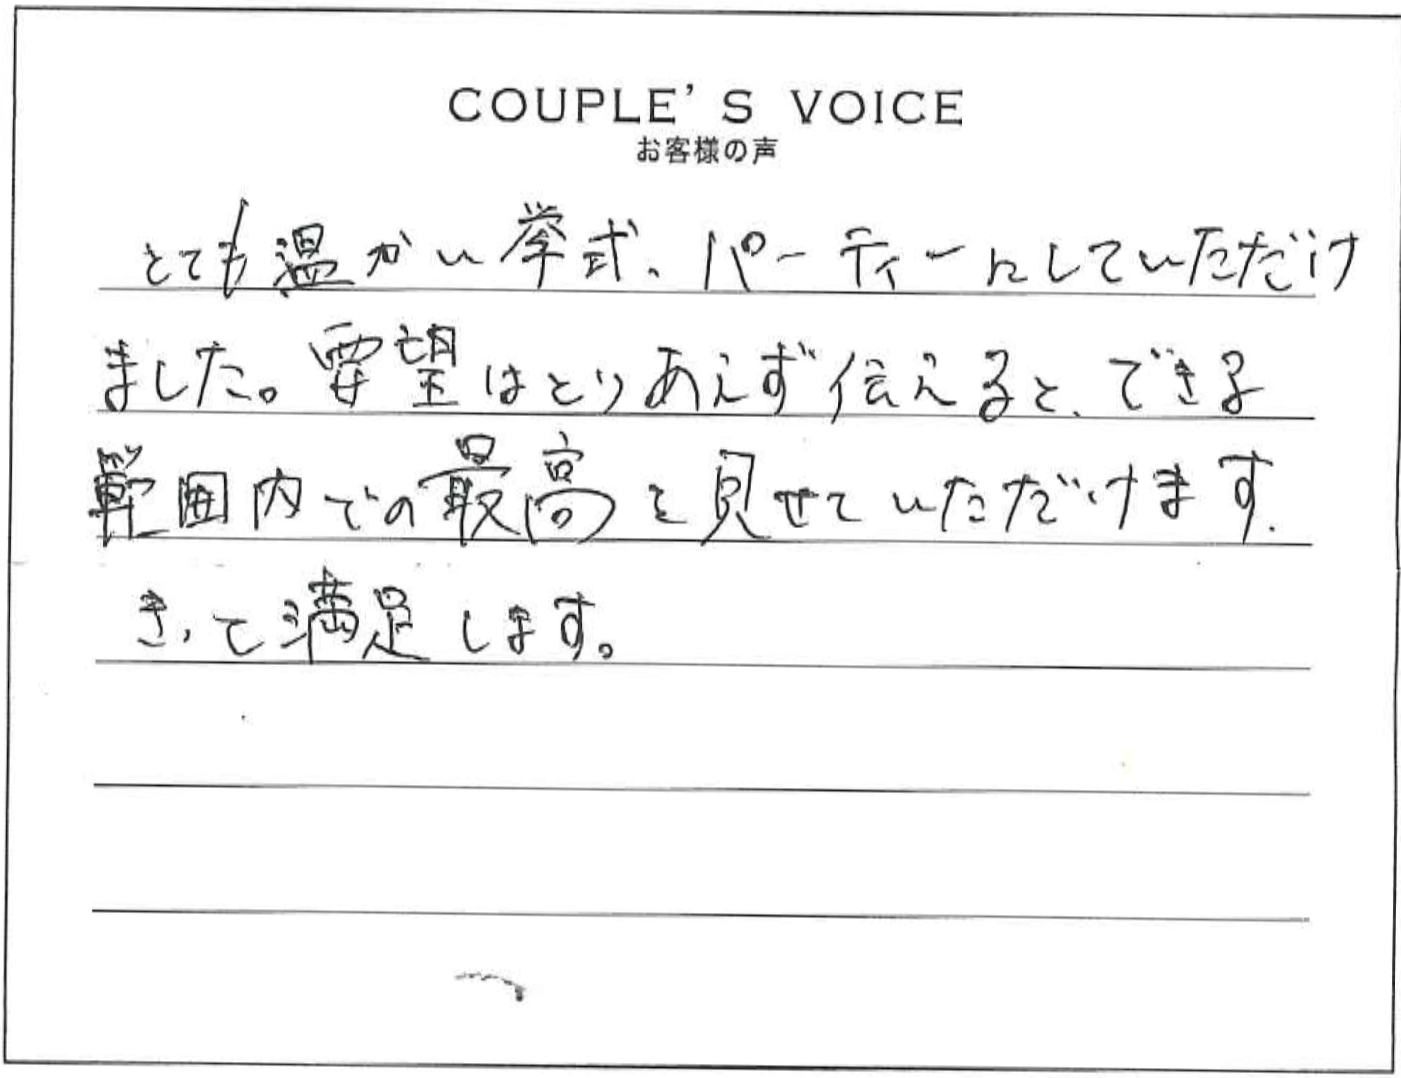 COUPLE'S VOICE
お客様の声
とても温かい挙式、パーティーにしていただけ
ました。要望はとりあえず伝えると、できる
範囲内での最高を見せていただけます。
きっと満足します。